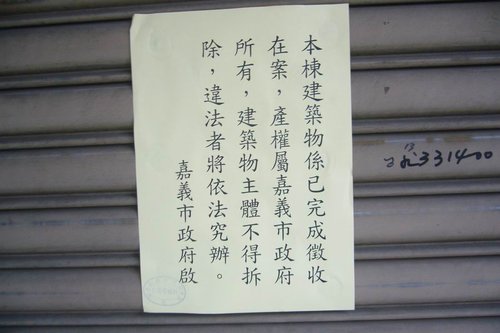 本棟建築物係已完成徵收
在案，產權屬嘉義市政府
所有，建築物主體不得拆
除，違法者將依法究辦。
嘉義市政府啟
331400